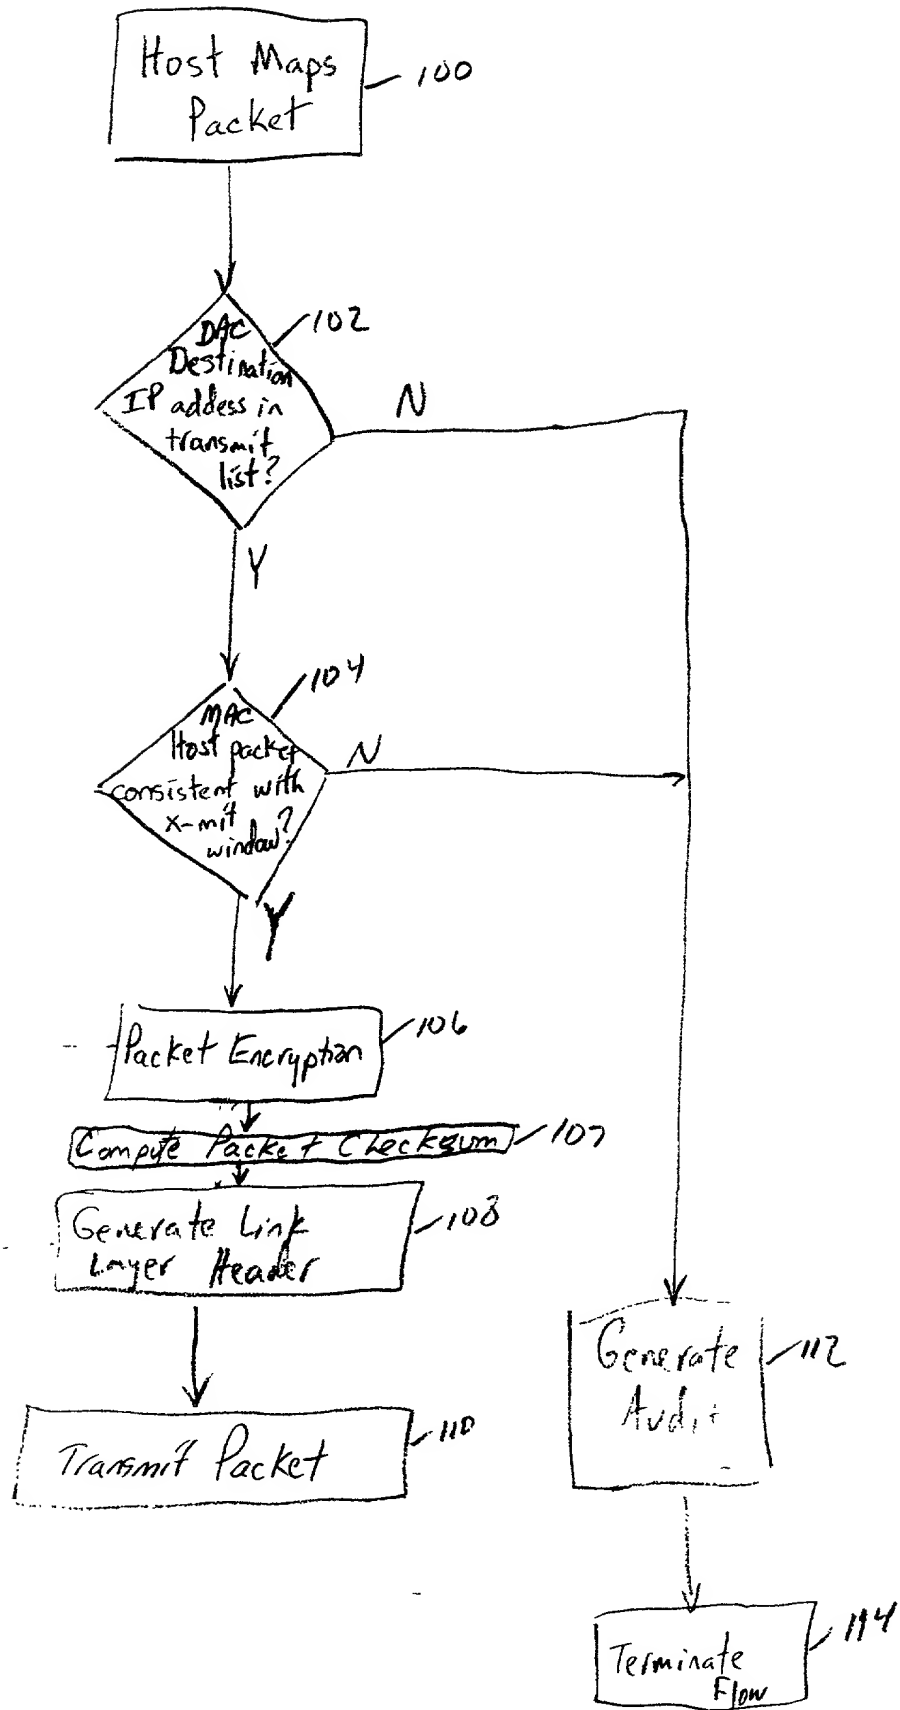 Host Maps
Packet
100
DAC
Destination
IP addess in
transmit
list?
102
N
Y
MAC
Host packet
consistent with
x-mit
window?
104
N
Y
Packet Encryption
106
Compute Packet Checksum
107
Generate Link
Layer Header
108
Transmit Packet
110
Generate
Audit
112
Terminate
Flow
114